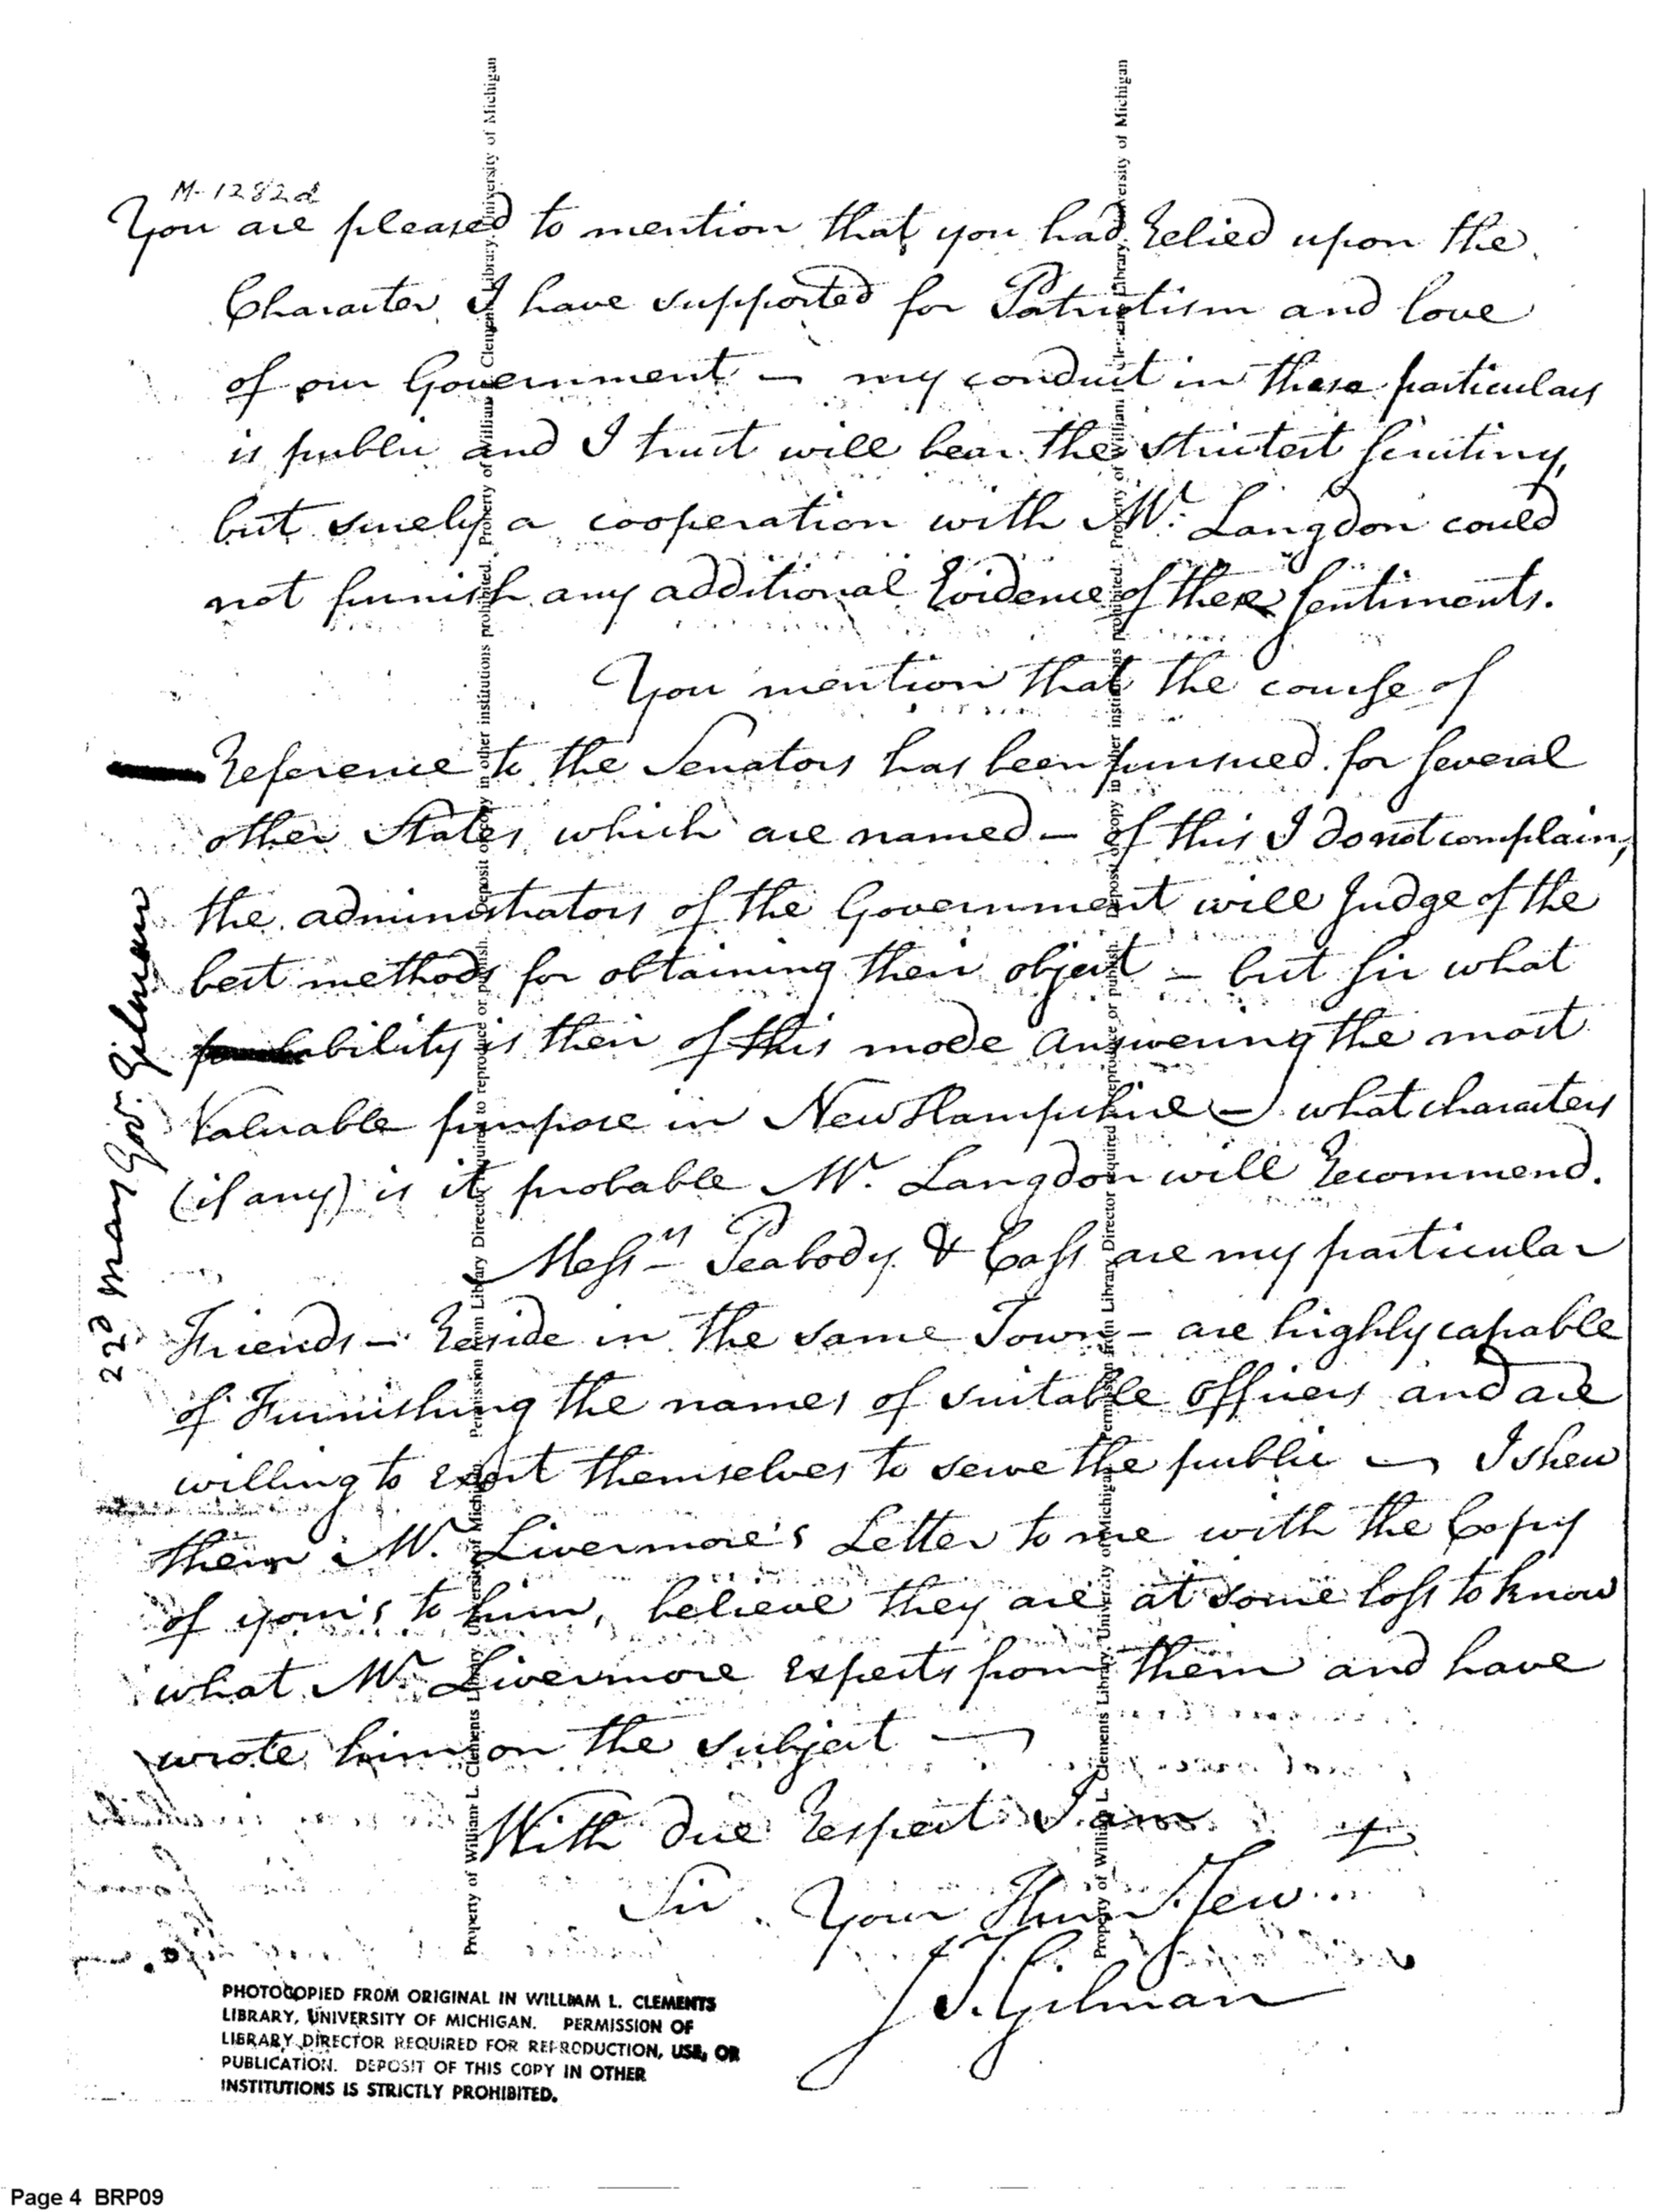 M-1282d
You are pleased to mention that you had relied upon the
Character I have supported for Patriotism and love
of our Government — my conduct in these particulars
is public and I trust will bear the strictest scrutiny,
but surely a cooperation with Mr. Langdon could
not furnish any additional Evidence of these sentiments.
You mention that the course of
Reference to the Senators has been pursued for several
other States which are named — of this I do not complain,
the administrators of the Government will Judge of the
best methods for obtaining their object — but sir what
probability is their of this mode answering the most
Valuable purpose in New Hampshire — what characters
(if any) is it probable Mr. Langdon will recommend.
Messrs Peabody & Cass are my particular
Friends — reside in the same Town — are highly capable
of Furnishing the names of suitable officers and are
willing to exert themselves to serve the public — I shew
them Mr. Livermore's Letter to me with the Copy
of your's to him, believe they are at some loss to know
what Mr. Livermore expects from them and have
wrote him on the subject —
With due respect I am
Sir Your Hum Serv
J T. Gilman
22d May Gov. Gilman
Property of William L. Clements Library, University of Michigan. Permission from Library Director required to reproduce or publish. Deposit of copy in other institutions prohibited. Property of William L. Clements Library, University of Michigan
Property of William L. Clements Library, University of Michigan. Permission from Library Director required to reproduce or publish. Deposit of copy in other institutions prohibited. Property of William L. Clements Library, University of Michigan
PHOTOCOPIED FROM ORIGINAL IN WILLIAM L. CLEMENTS
LIBRARY, UNIVERSITY OF MICHIGAN. PERMISSION OF
LIBRARY DIRECTOR REQUIRED FOR REPRODUCTION, USE, OR
PUBLICATION. DEPOSIT OF THIS COPY IN OTHER
INSTITUTIONS IS STRICTLY PROHIBITED.
Page 4 BRP09